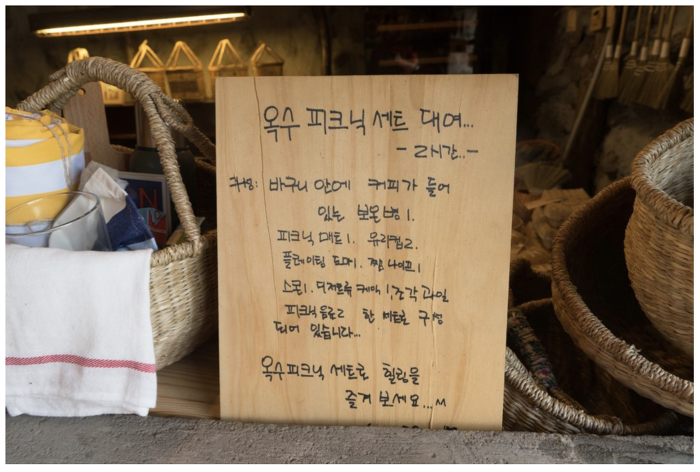 옥수 피크닉 세트 대여...
- 2시간..-
구성: 바구니 안에 커피가 들어
있는 보온병 1.
피크닉 매트1. 유리컵2.
플레이팅 도마1. 잼 나이프1
스콘1. 디저트류 케익1, 조각 과일
피크닉 음료2 한 바트로 구성
되어 있습니다...
옥수피크닉 세트로 힐링을
즐겨 보세요...^^
N